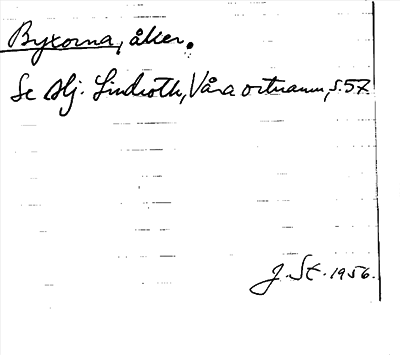 Byxorna, åker.
Se Hj. Lindroth, Våra ortnamn, s. 57
J. St. 1956.